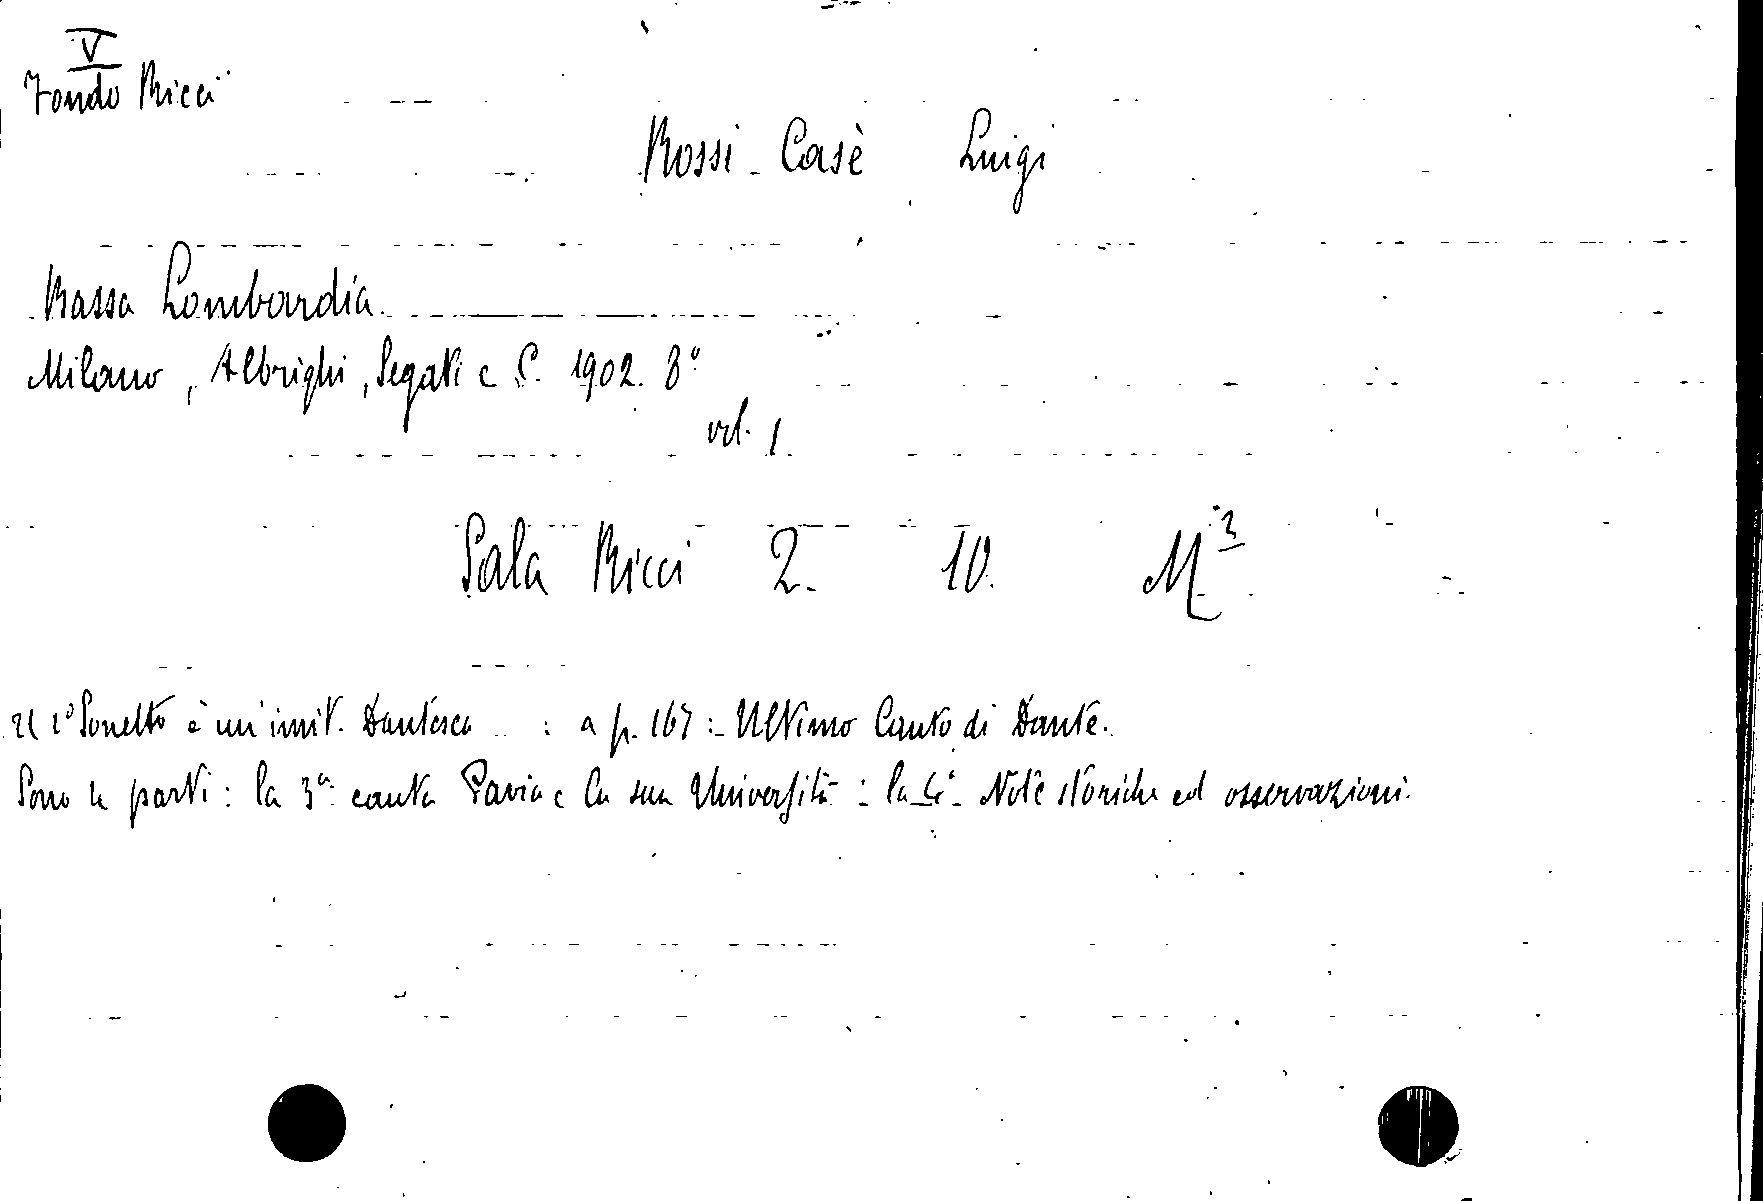 V
Fondo Ricci
Rossi-Casè Luigi
Bassa Lombardia.
Milano, Albrighi, Segati e C. 1902. 8°
vol. 1.
Sala Ricci 2. 10. M³
Il 1° Sonetto è un' imit. Dantesca : a p. 167 : Ultimo Canto di Dante.
Sono 4 parti : la 3ª canta Pavia e la sua Università : la 4ª Note storiche ed osservazioni.